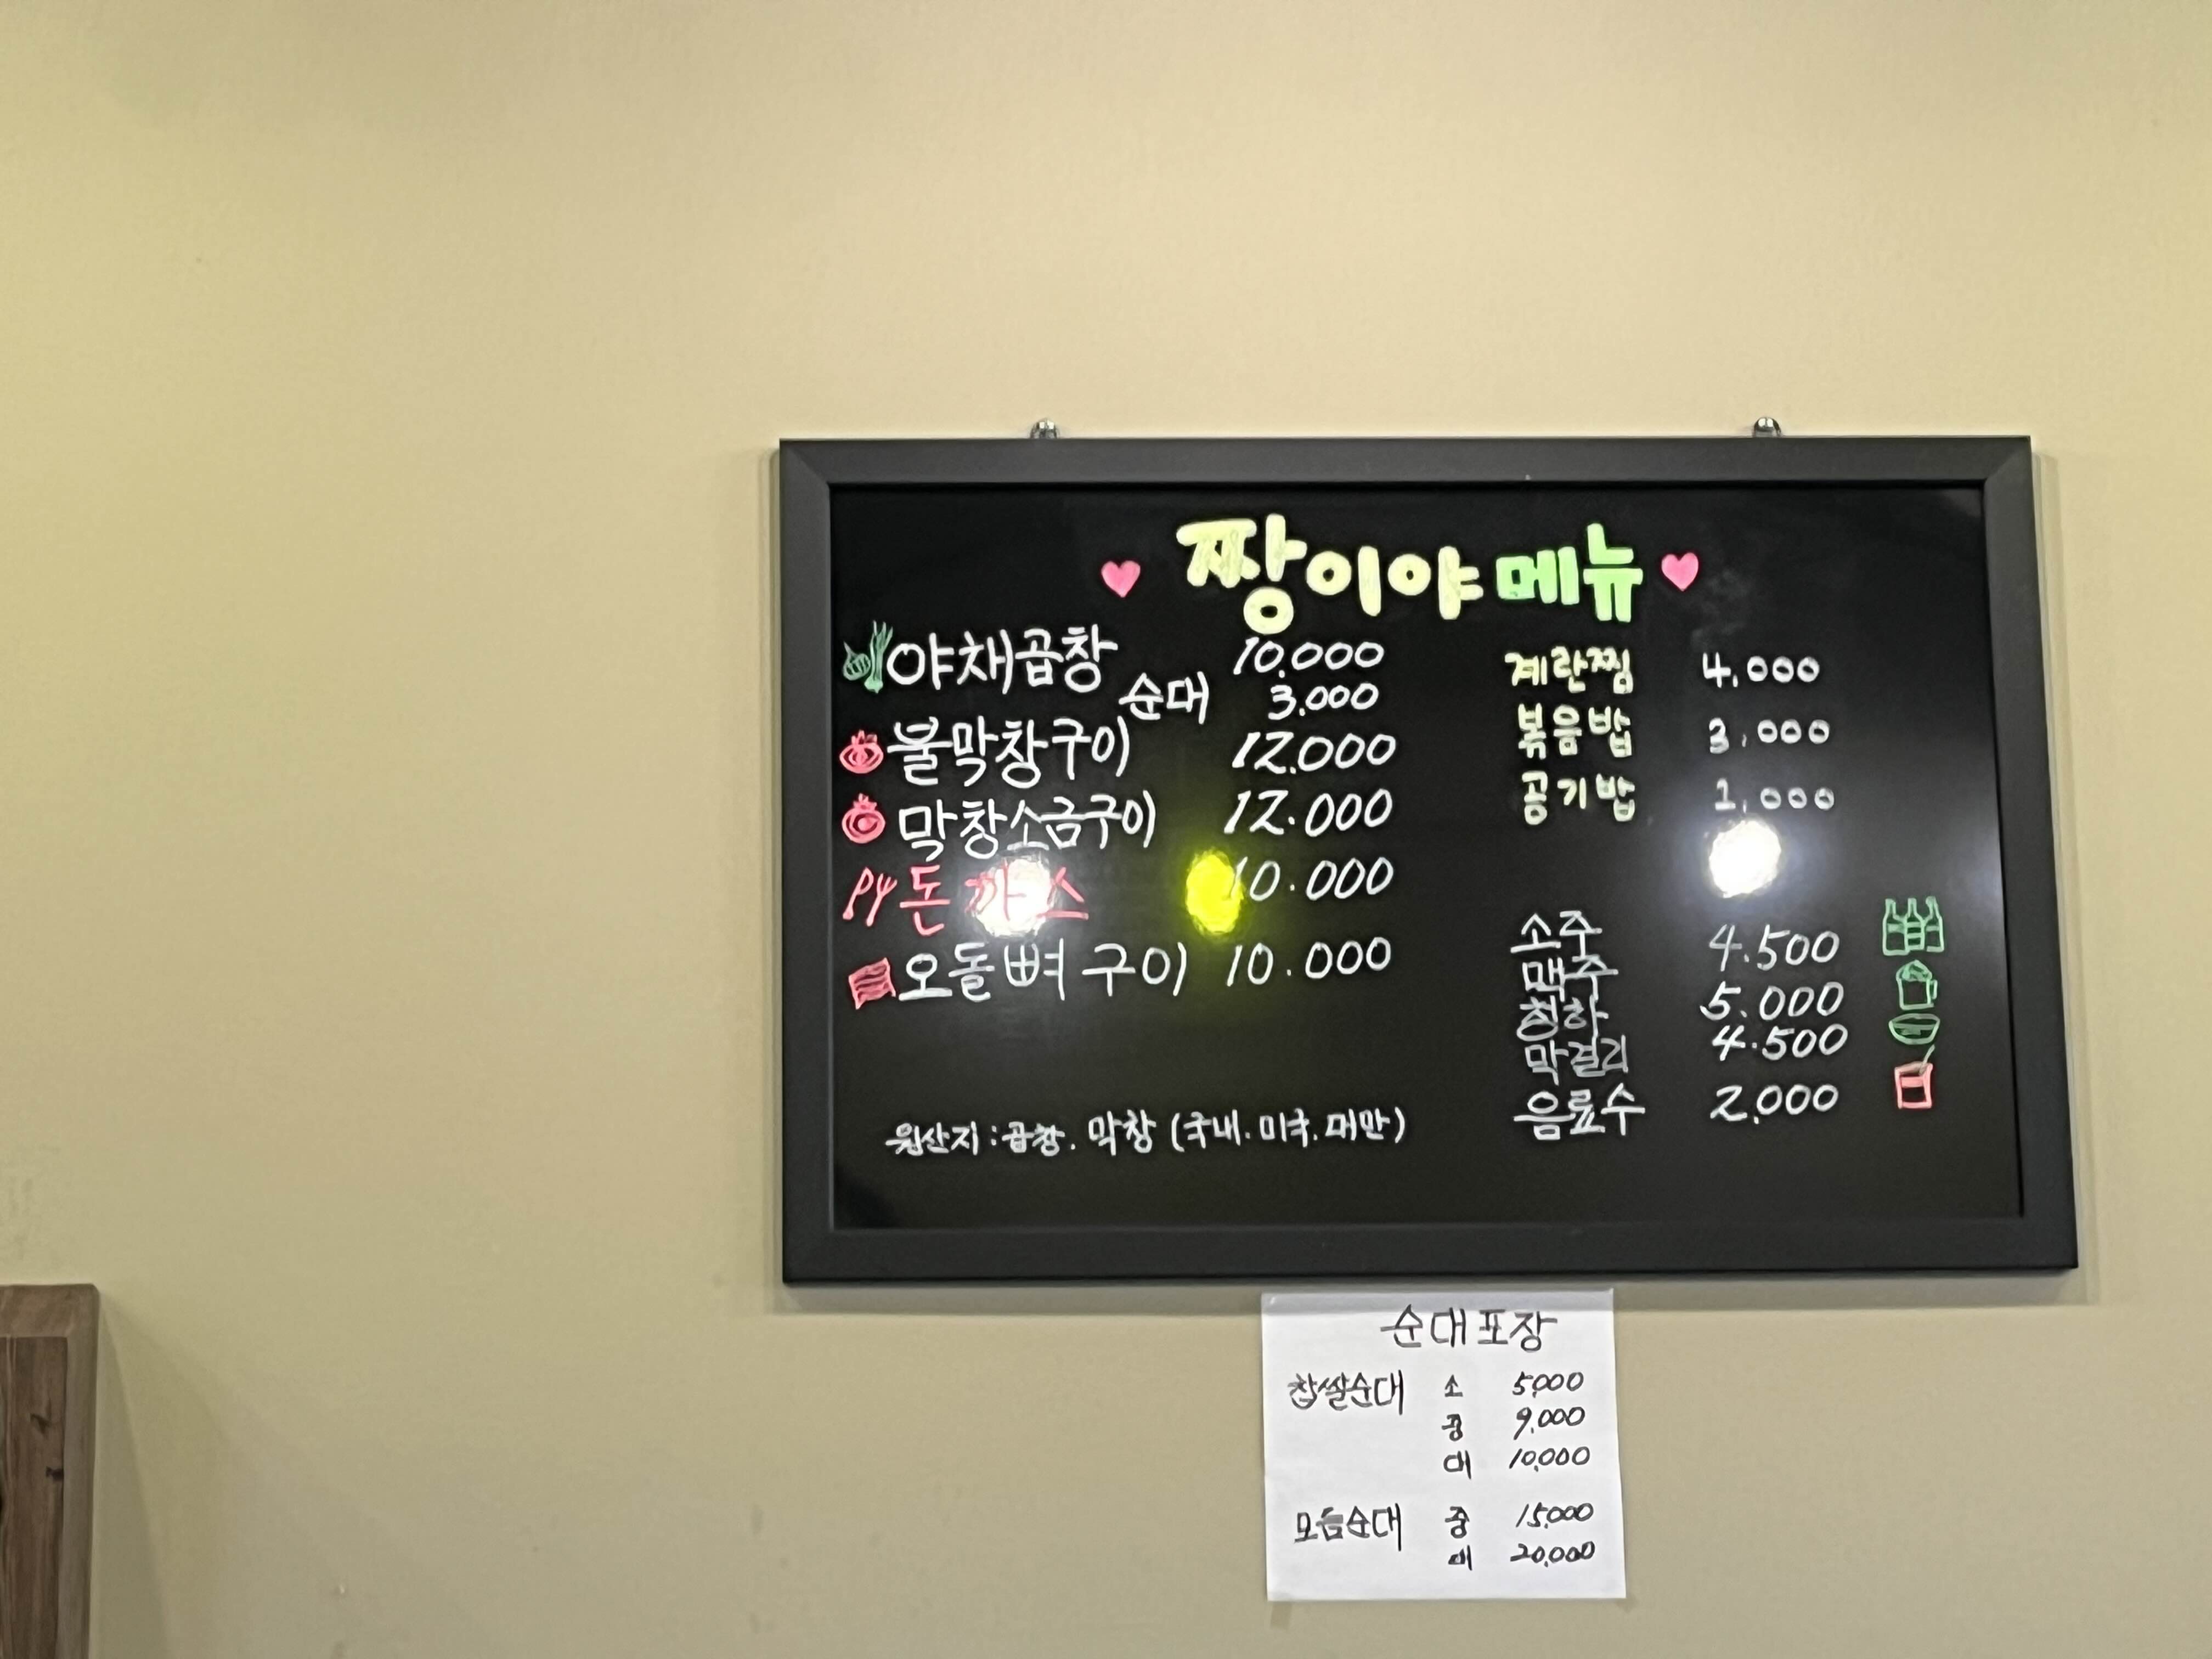 짱이야 메뉴
야채곱창 10.000
순대 3.000
불막창구이 12.000
막창소금구이 12.000
돈까스 10.000
오돌뼈 구이 10.000
원산지 : 곱창. 막창 (국내. 미국. 대만)
계란찜 4,000
볶음밥 3,000
공기밥 1,000
소주 4.500
맥주
청하 5.000
막걸리 4.500
음료수 2.000
순대포장
찹쌀순대 소 5,000
중 9,000
대 10,000
모듬순대 중 15,000
대 20,000